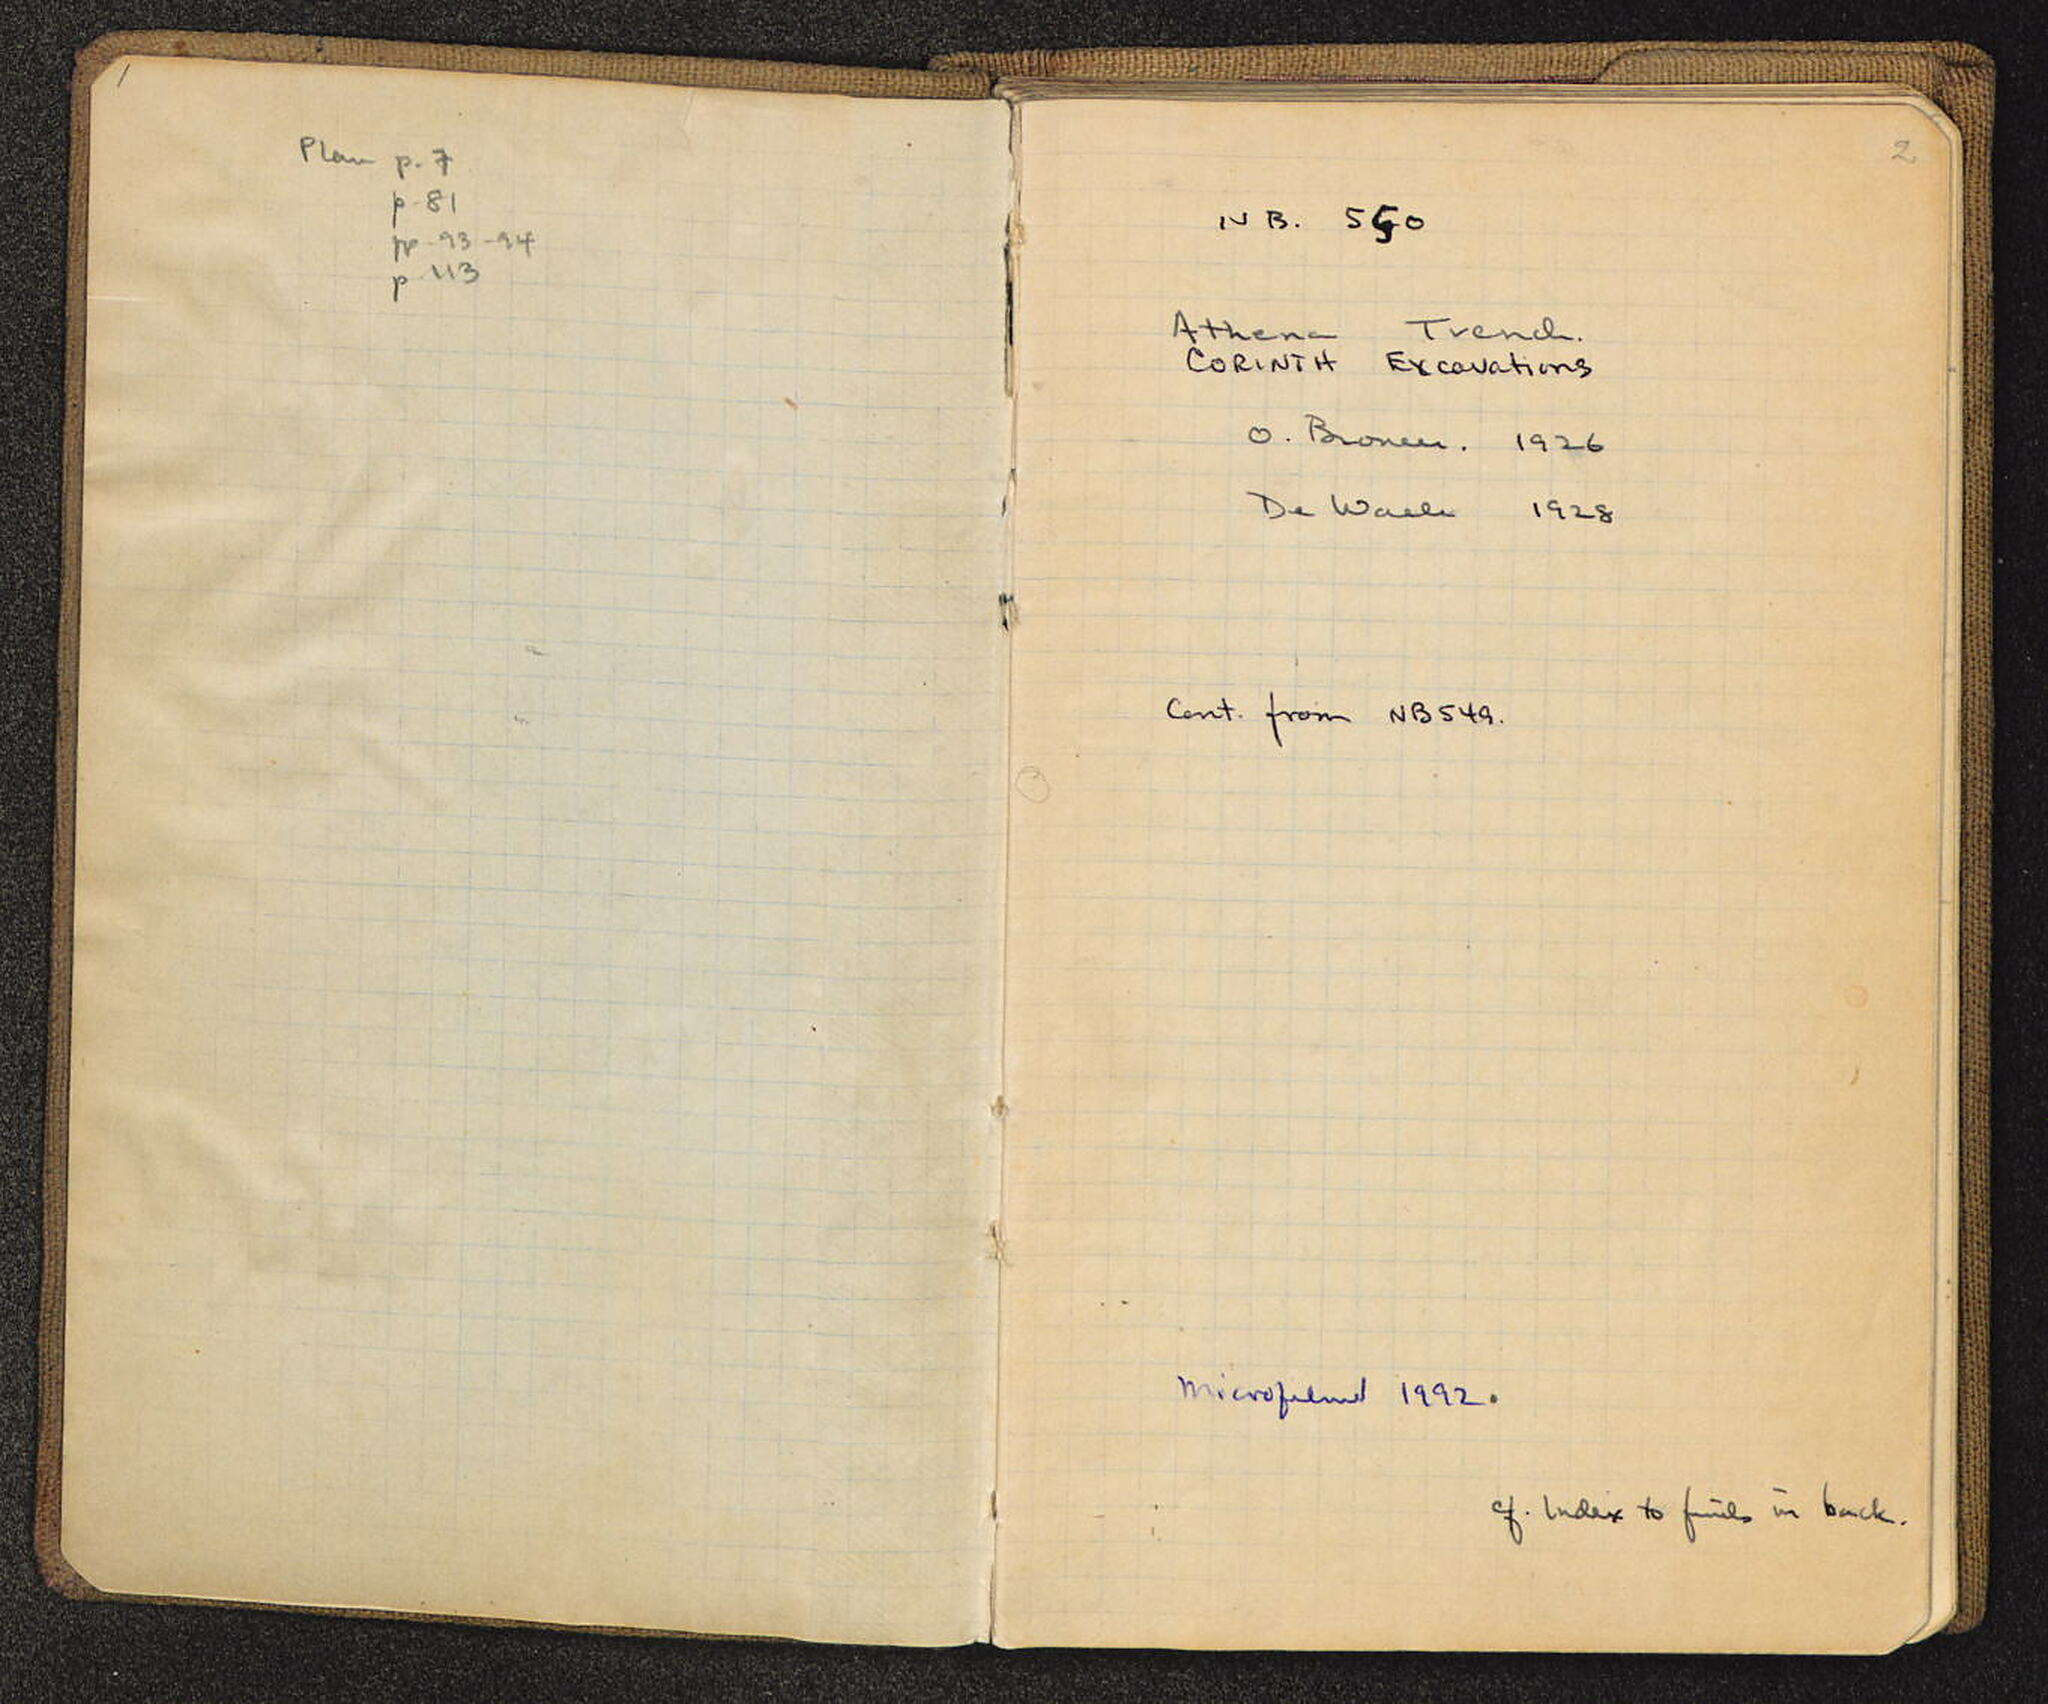 1
Plan p. 7
p. 81
pp. 93-94
p. 113
2
NB. 550
Athena Trench.
CORINTH Excavations
O. Broneer. 1926
De Waele 1928
Cont. from NB549.
Microfilmed 1992.
cf. Index to finds in back.